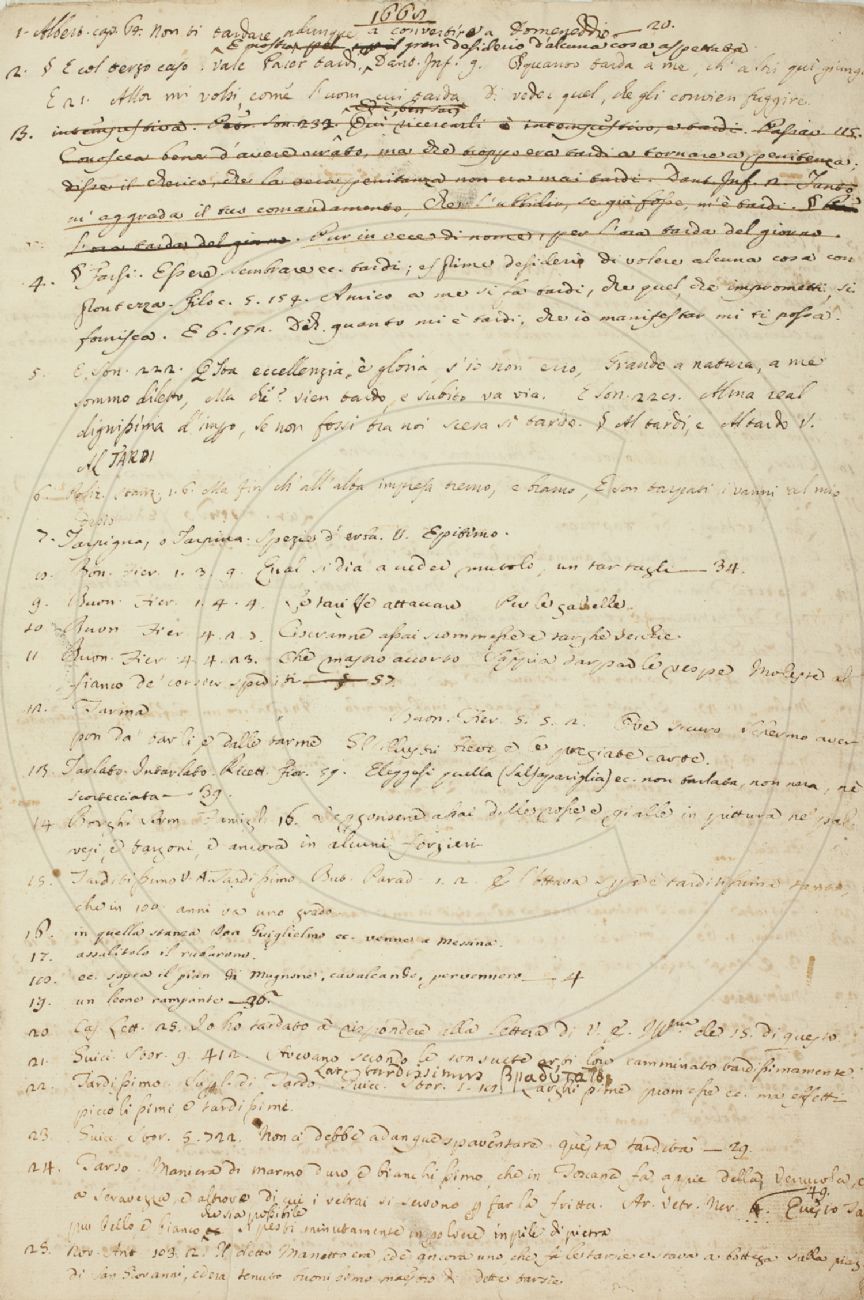 1668
1. Albert. cap. 64. Non ti tardare adunque a convertire a Domeneddio — 20.
E posta il gran desiderio d'alcuna cosa aspettata
2. § E col terzo caso vale Parer tardi. Dant. Inf. 9. O quanto tarda a me, ch'altri qui giunga
E 21. Allor mi volsi, come l'uom cui tarda Di veder quel, che gli convien fuggire.
13. intempestiva. Petr. Son. 232. è intempestivo, e tardi. Passav. 115.
Conoscea bene d'avere errato, ma che troppo era tardi a tornare a penitenza;
disse il cherico, che la vera penitenza non era mai tardi. Dant. Inf. 2. Tanto
m'aggrada il tuo comandamento, Che l'ubbidir, se già fosse, m'è tardi. §
L'ora tarda del giorno. Pur in vece di nome, per l'ora tarda del giorno.
4. § Farsi. Essere sembrare ec. tardi; esprime desiderio di volere alcuna cosa con
prontezza. Filoc. 5. 154. Amico a me si fa tardi, che quel, che impromettesti, si
fornisca. E 6. 152. Deh quanto mi è tardi, che io manifestar mi ti possa.
5. E Son. 222. Sua eccellenzia, è gloria s'io non erro, Grande a natura, a me
sommo diletto, Ma che? vien tardo, e subito va via. E Son. Alma real
dignissima d'impero, se non fossi tra noi scesa si tardi. § Al tardi, e Al tardo V.
AL TARDI
6. Stanz. 1. 6. Ma fin ch'all'alta impresa tremo, e bramo, E son tarpati i vanni al mio
7. Tarpigna, o Tarpina. Spezie d'erba. V. Epitimo.
8. Bon. Fier. 1. 3. 9. Qual si dia a veder mutolo, un tartagli — 34.
9. Buon. Fier. 1. 4. 4. Le tariffe attaccare Per le gabelle.
10. Buon Fier. 4. 2. 7. assai scommesse e targhe vecchie.
11. Buon. Fier. 4. 4. 23. Che mastro accorto Sappia tarpar le vespe Moleste al
fianco de' corsier spediti — 57.
12. Tarma Buon. Fier. 5. 5. 2. Ove sicuro schermo aver
pon da' tarli, e dalle tarme Gl'illustri e le pregiate carte.
13. Tarlato. Intarlato. Ricett. Fior. 59. Eleggesi quella (Salsapariglia) ec. non tarlata, non nera, nè
scortecciata — 39.
14. Borgh. Arm. Famigl. 16. assai rosse e gialle in pittura ne' pal-
vesi, e targoni, e ancora in alcuni forzieri
15. Tarditissimo V. A. Tardissimo. But. Parad. 1. 2. L'ottava spera è tarditissima tanto,
che in 100 anni va uno grado.
16. in quella stanza Don Guiglielmo ec. venne a Messina.
17. assalitolo il rubarono.
18. ec. sopra il pian di Mugnone, cavalcando, pervennero — 4
19. un leone rampante — 36.
20. Cas. Lett. 25. Io ho tardato a rispondere alla lettera di V. S. de' 15. di questo
21. Guicc. Stor. 9. 412. Avevano secondo le consuete arti loro camminato tardissimamente.
22. Tardissimo. Superl. di Tardo. Lat. tardissimus Guicc. Stor. Larghissime promesse ec. ma effetti
piccolissimi e tardissimi.
23. Guicc. Stor. 5. 722. Non ci debbe adunque spaventare questa tardità — 29.
24. Tarso. Maniera di marmo duro, e bianchissimo, che in Toscana fa appie della Verrucola, e
a Seravezza, e altrove di cui i vetrai si servono per far la fritta. Ar. Vetr. Ner. 49. Questo Ta
più bello e bianco che sia possibile si pesti minutamente in polvere in pile di pietra
25. Nov. Ant. 103. 12. Il detto Manetto era, ed è ancora uno che fa le tarsie e stava a bottega sulla piaz
di San Giovanni, ed era tenuto buonissimo maestro di dette tarsie.